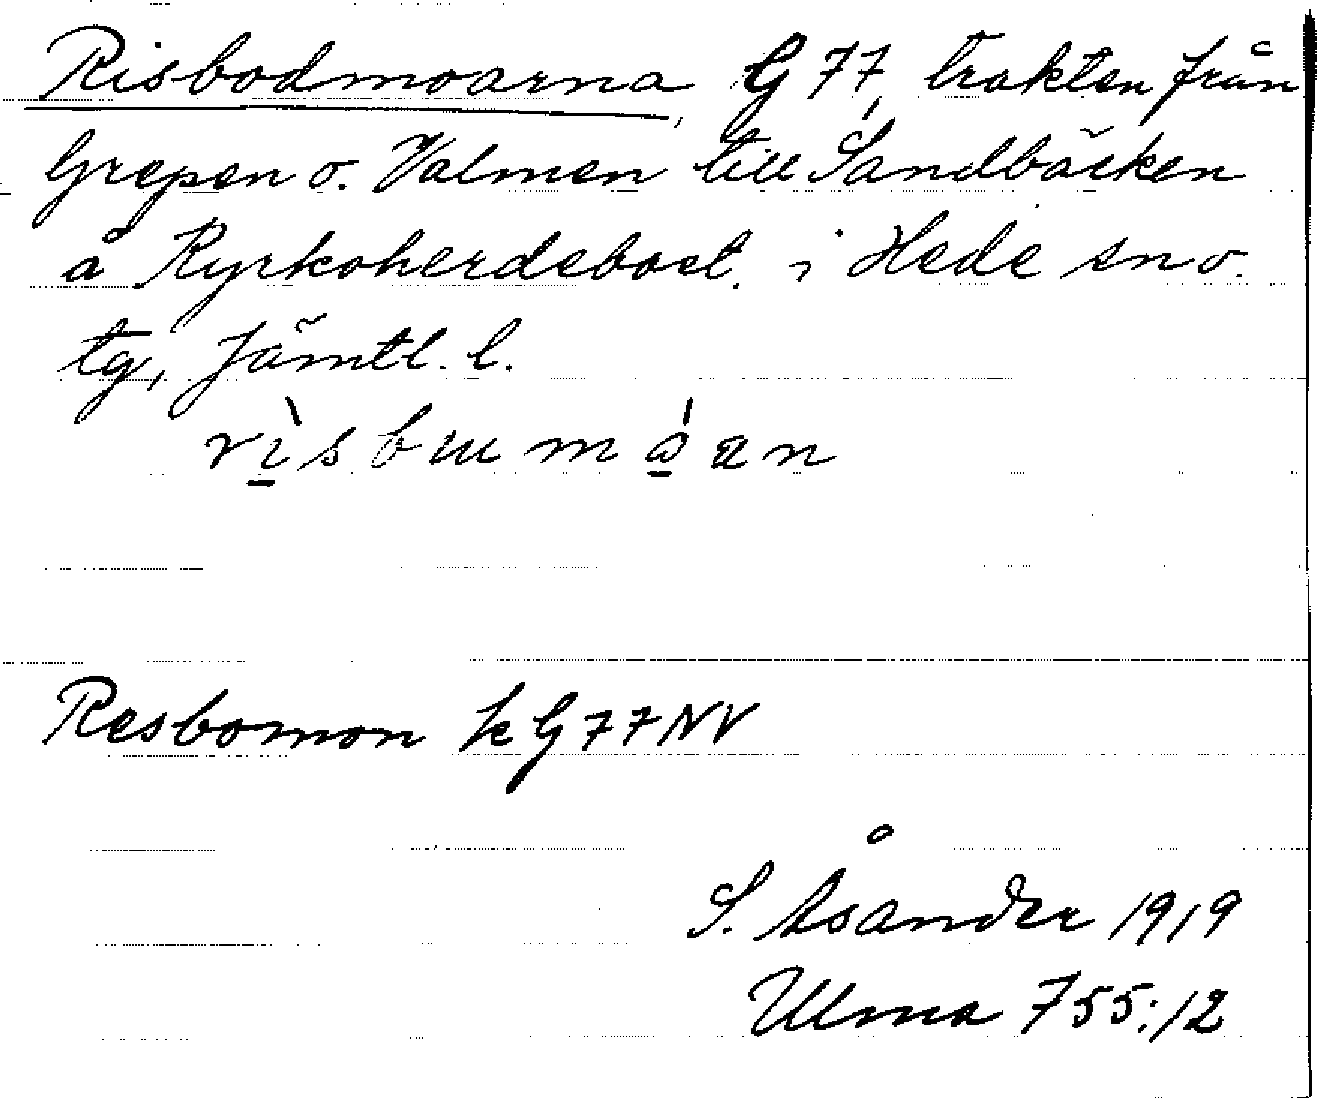 Risbodmoarna, G 77, trakten från
Grepen o. Valmen till Sandbäcken
å Kyrkoherdebost. i Hede sn o.
tg, Jämtl. l.
rìsbummóan
Resbomon k G77NV
S. Åsander 1919
Ulma 755:12